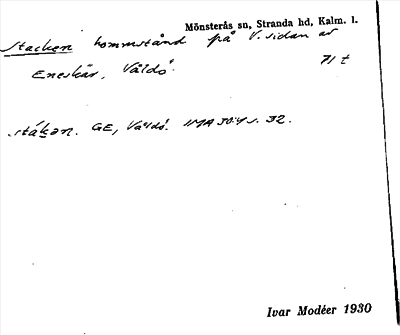 Mönsterås sn, Stranda hd, Kalm. l.
Stacken kommstånd på V. sidan av
Eneskär, Våldö.
71 t
GE, Våldö. IMA 30:4 s. 32.
Ivar Modéer 1930